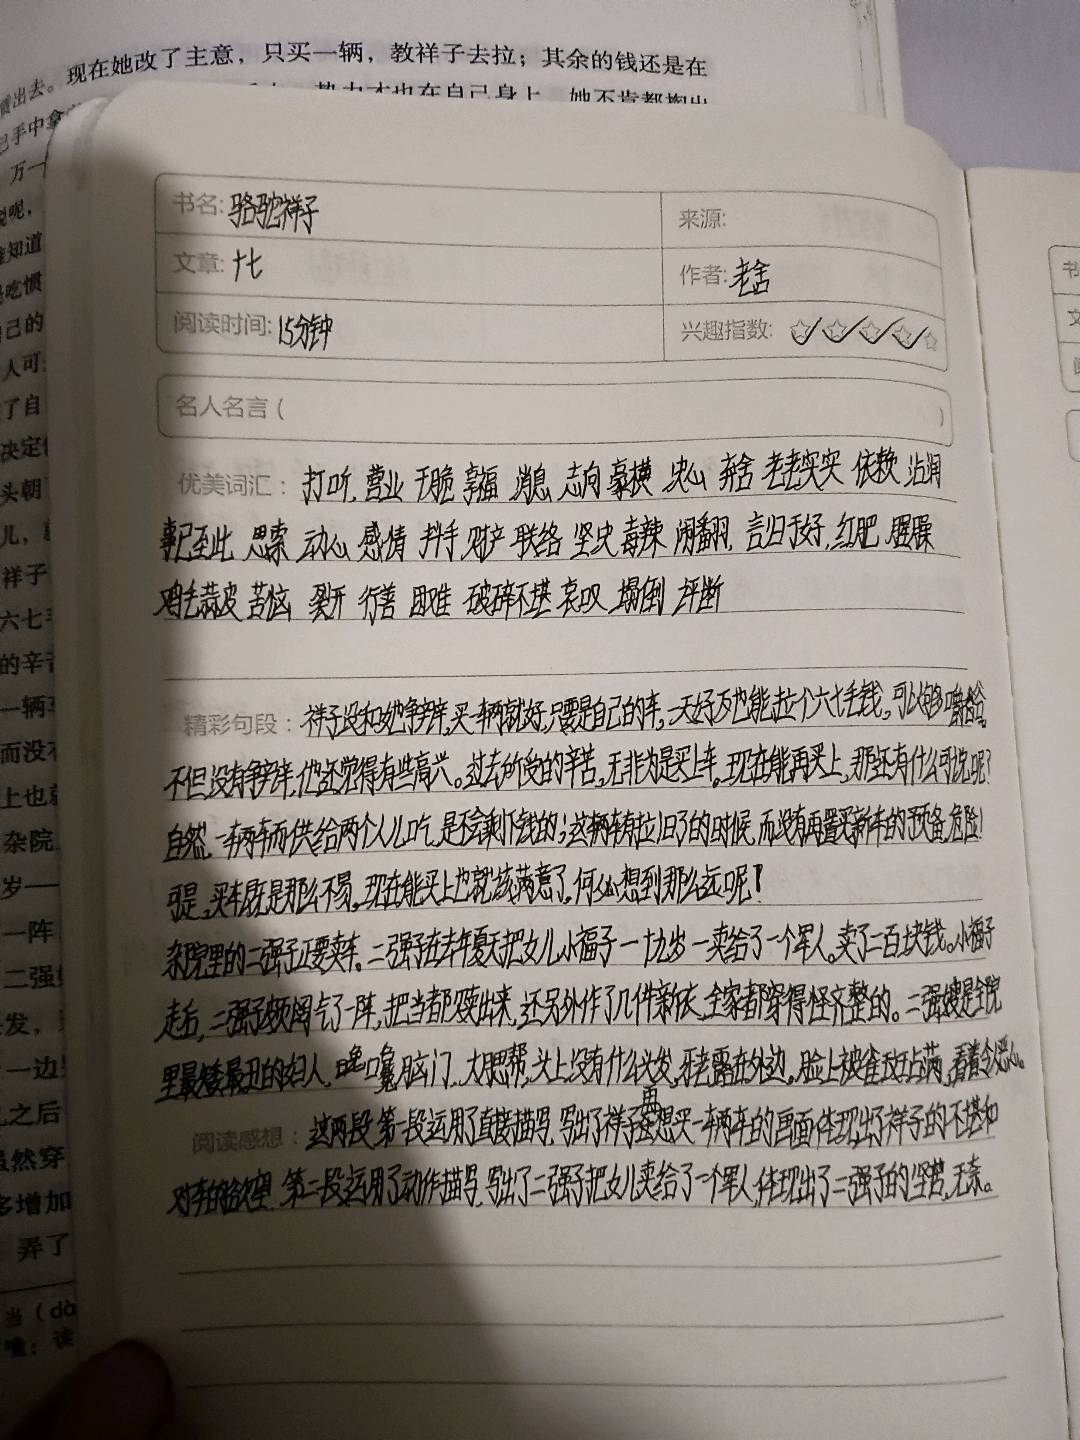 贯出去。现在她改了主意，只买一辆，教祥子去拉；其余的钱还是在
书名: 骆驼祥子
来源:
文章: 十七
作者: 老舍
阅读时间: 15分钟
兴趣指数:
名人名言 ( )
优美词汇： 打听 营业 干脆 享福 消息 志向 豪横 忠心 弃舍 老老实实 依赖 沾润
事已至此 思索 动心 感情 抖手 财产 联络 坚决 毒辣 闹翻 言归于好 红肥 腥臊
鸡毛蒜皮 苦恼 裂开 行善 困难 破碎不堪 哀叹 塌倒 评断
精彩句段： 祥子没和她争辩,买一辆就好,只要是自己的车,一天好歹也能拉个六七毛钱,可以够嚼谷。
不但没有争辩,他还觉得有些高兴。过去所受的辛苦,无非为是买上车。现在能再买上,那还有什么可说呢?
自然,一辆车而供给两个人儿吃,是不会剩下钱的;这辆车有拉旧了的时候,而没有再置买新车的预备,危险!
可是,买车既是那么不易,现在能买上也就该满意了,何必想到那么远呢!
杂院里的二强子正要卖车。二强子在去年夏天把女儿小福子—十九岁—卖给了一个军人。卖了二百块钱。小福子
走后,二强子颇阔气了一阵,把当都赎出来,还另外作了几件新衣,全家都穿得怪齐整的。二强嫂是全院
里最矮最丑的妇人,囔脑门,大腮帮,头上没有什么头发,牙老露在外边,脸上被雀斑占满,看着令人恶心。
阅读感想： 这两段第一段运用了直接描写,写出了祥子再想买一辆车的画面体现出了祥子的不堪和
对车的欲望,第二段运用了动作描写,写出了二强子把女儿卖给了一个军人,体现出了二强子的坚苦,无奈。